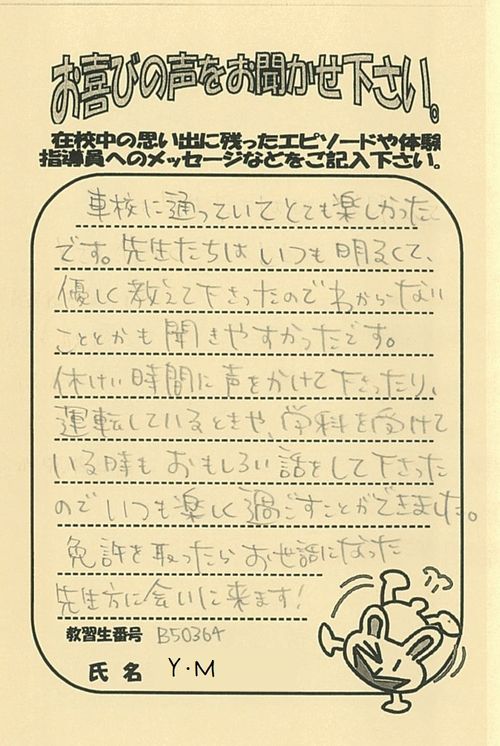 お喜びの声をお聞かせ下さい。
在校中の思い出に残ったエピソードや体験
指導員へのメッセージなどをご記入下さい。
車校に通っていてとても楽しかった
です。先生たちはいつも明るくて、
優しく教えて下さったのでわからない
こととかも聞きやすかったです。
休けい時間に声をかけて下さったり、
運転しているときや、学科を受けて
いる時もおもしろい話をして下さった
のでいつも楽しく過ごすことができました。
免許を取ったらお世話になった
先生方に会いに来ます!
教習生番号 B50364
氏名 Y・M